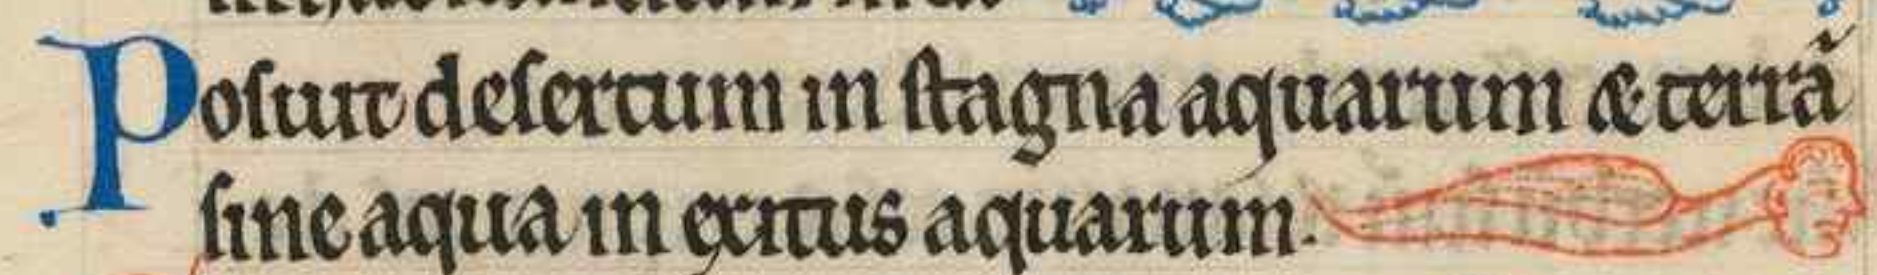 Posuit desertum in stagna aquarum & terrã
sine aqua in exitus aquarum.